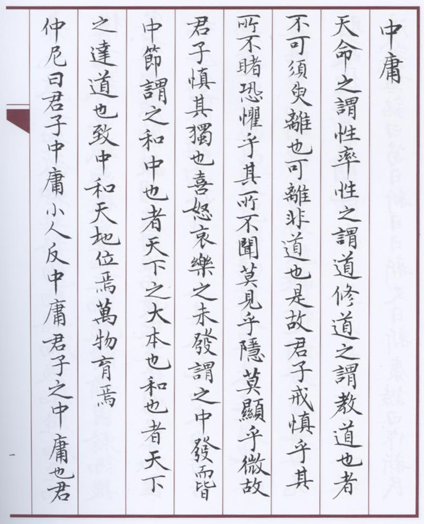 中庸
天命之謂性率性之謂道修道之謂教道也者
不可須臾離也可離非道也是故君子戒慎乎其
所不睹恐懼乎其所不聞莫見乎隱莫顯乎微故
君子慎其獨也喜怒哀樂之未發謂之中發而皆
中節謂之和中也者天下之大本也和也者天下
之達道也致中和天地位焉萬物育焉
仲尼曰君子中庸小人反中庸君子之中庸也君